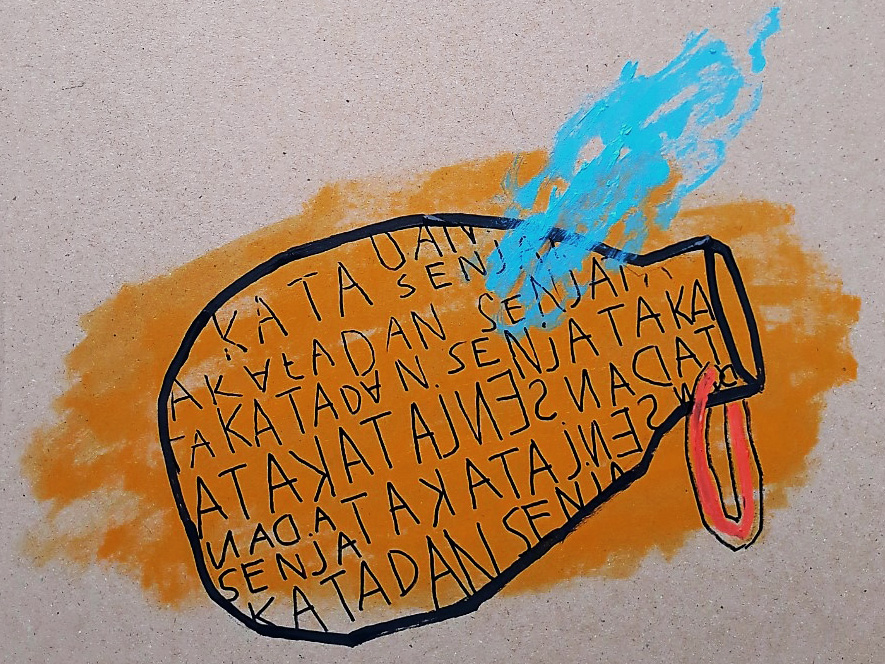 KATA UAN
SENJ
AKATADAN SENJA
TAKATADAN. SENJATAKA
ATAKATAJNES NADAT
NAD.A TAKATAJNES
SENJA
KATADAN SENJA